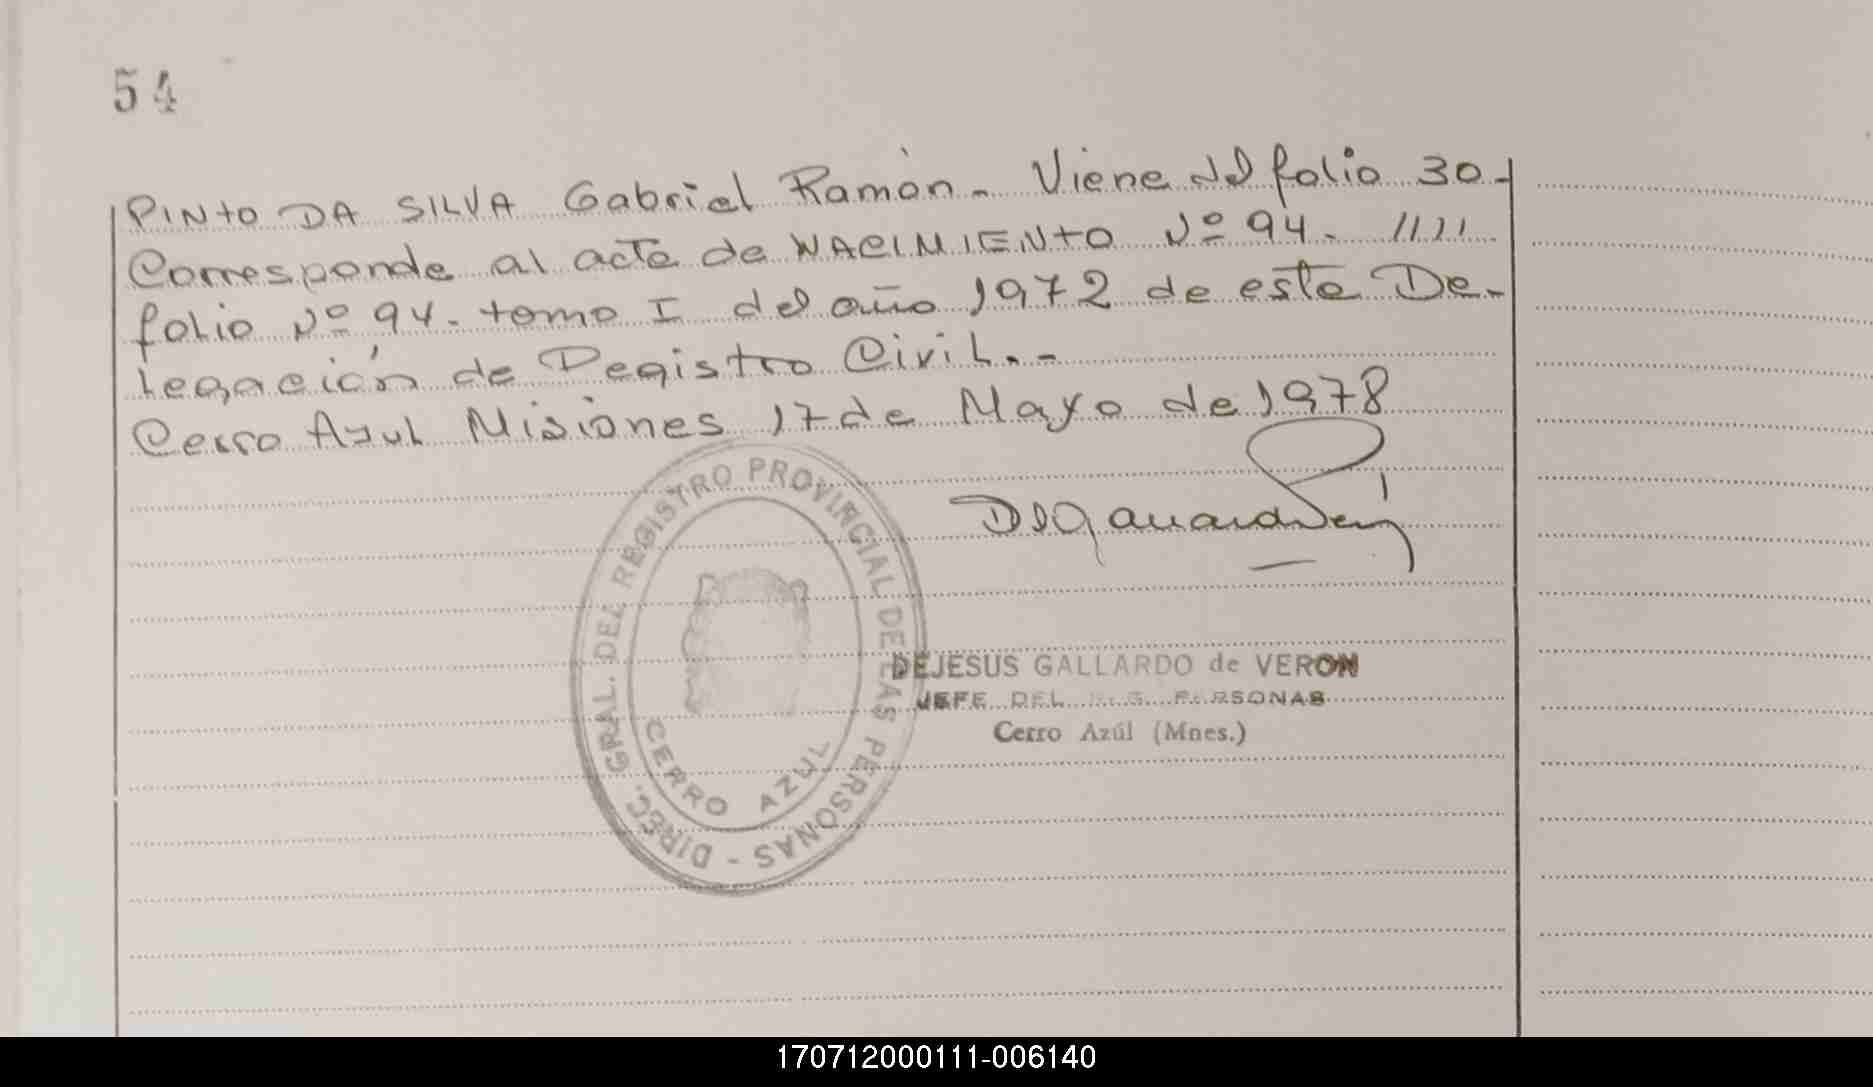 54
PINTO DA SILVA Gabriel Ramón. Viene del folio 30.
Corresponde al acta de NACIMIENTO Nº 94. ////
folio Nº 94. tomo I del año 1972 de esta De-
legación de Registro Civil. -
Cerro Azul Misiones 17 de Mayo de 1978
DIREC. GRAL. DEL REGISTRO PROVINCIAL DE LAS PERSONAS -
CERRO AZUL
DEJESUS GALLARDO de VERON
JEFE DEL REG. PERSONAS
Cerro Azúl (Mnes.)
170712000111-006140